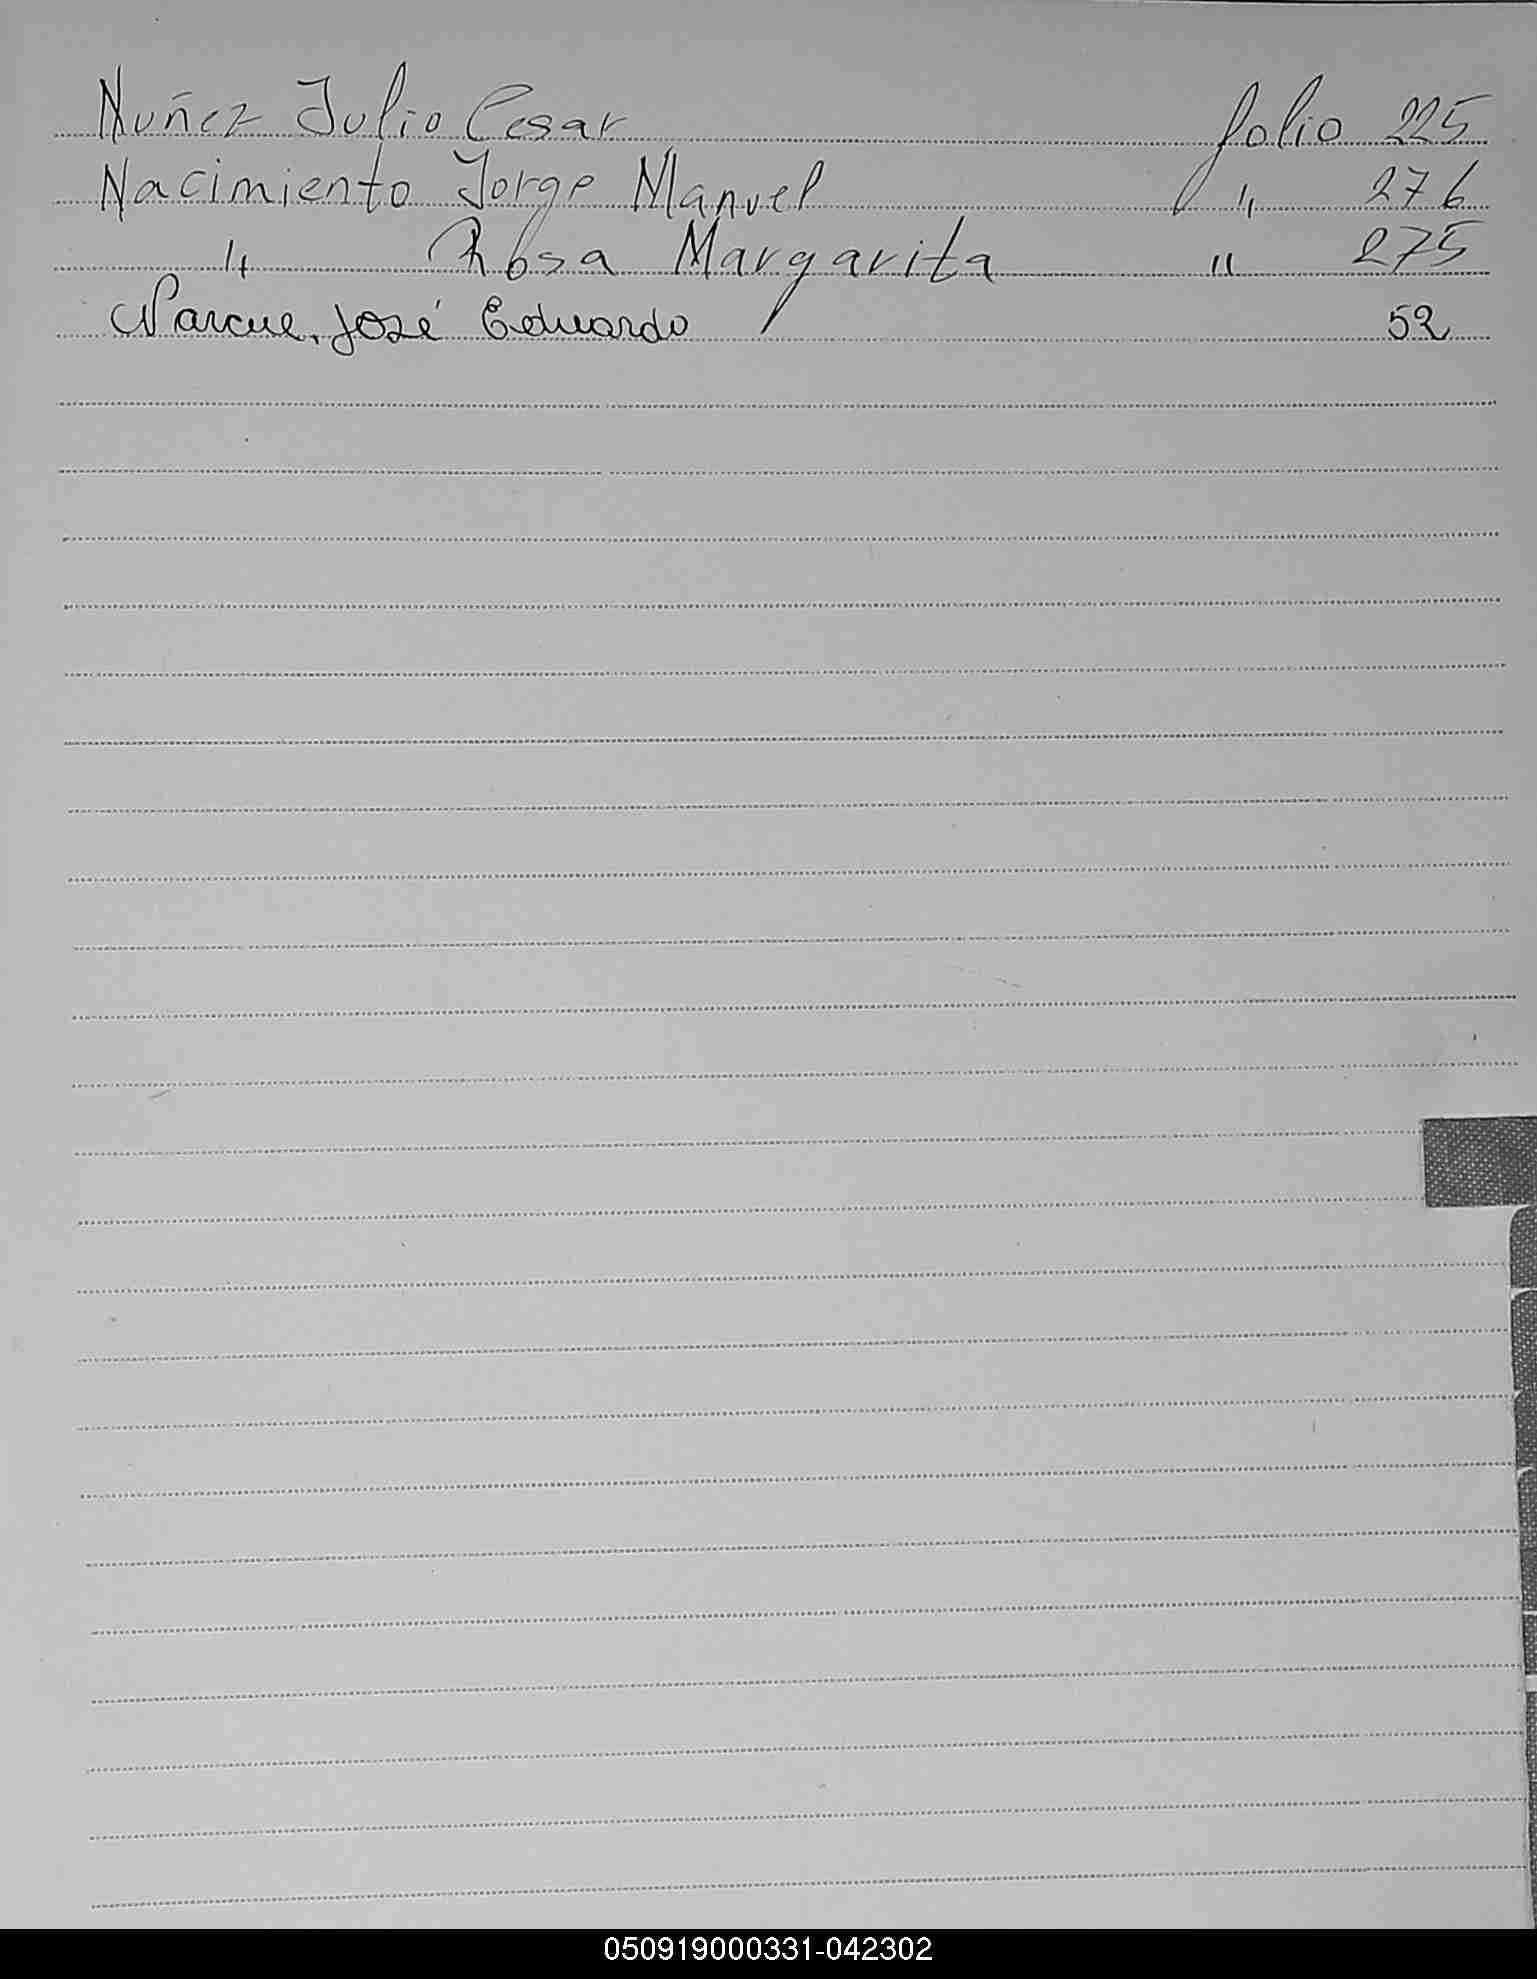 Nuñez Julio Cesar folio 225
Nacimiento Jorge Manuel " 276
" Rosa Margarita " 275
Narcue, José Eduardo 52
050919000331-042302